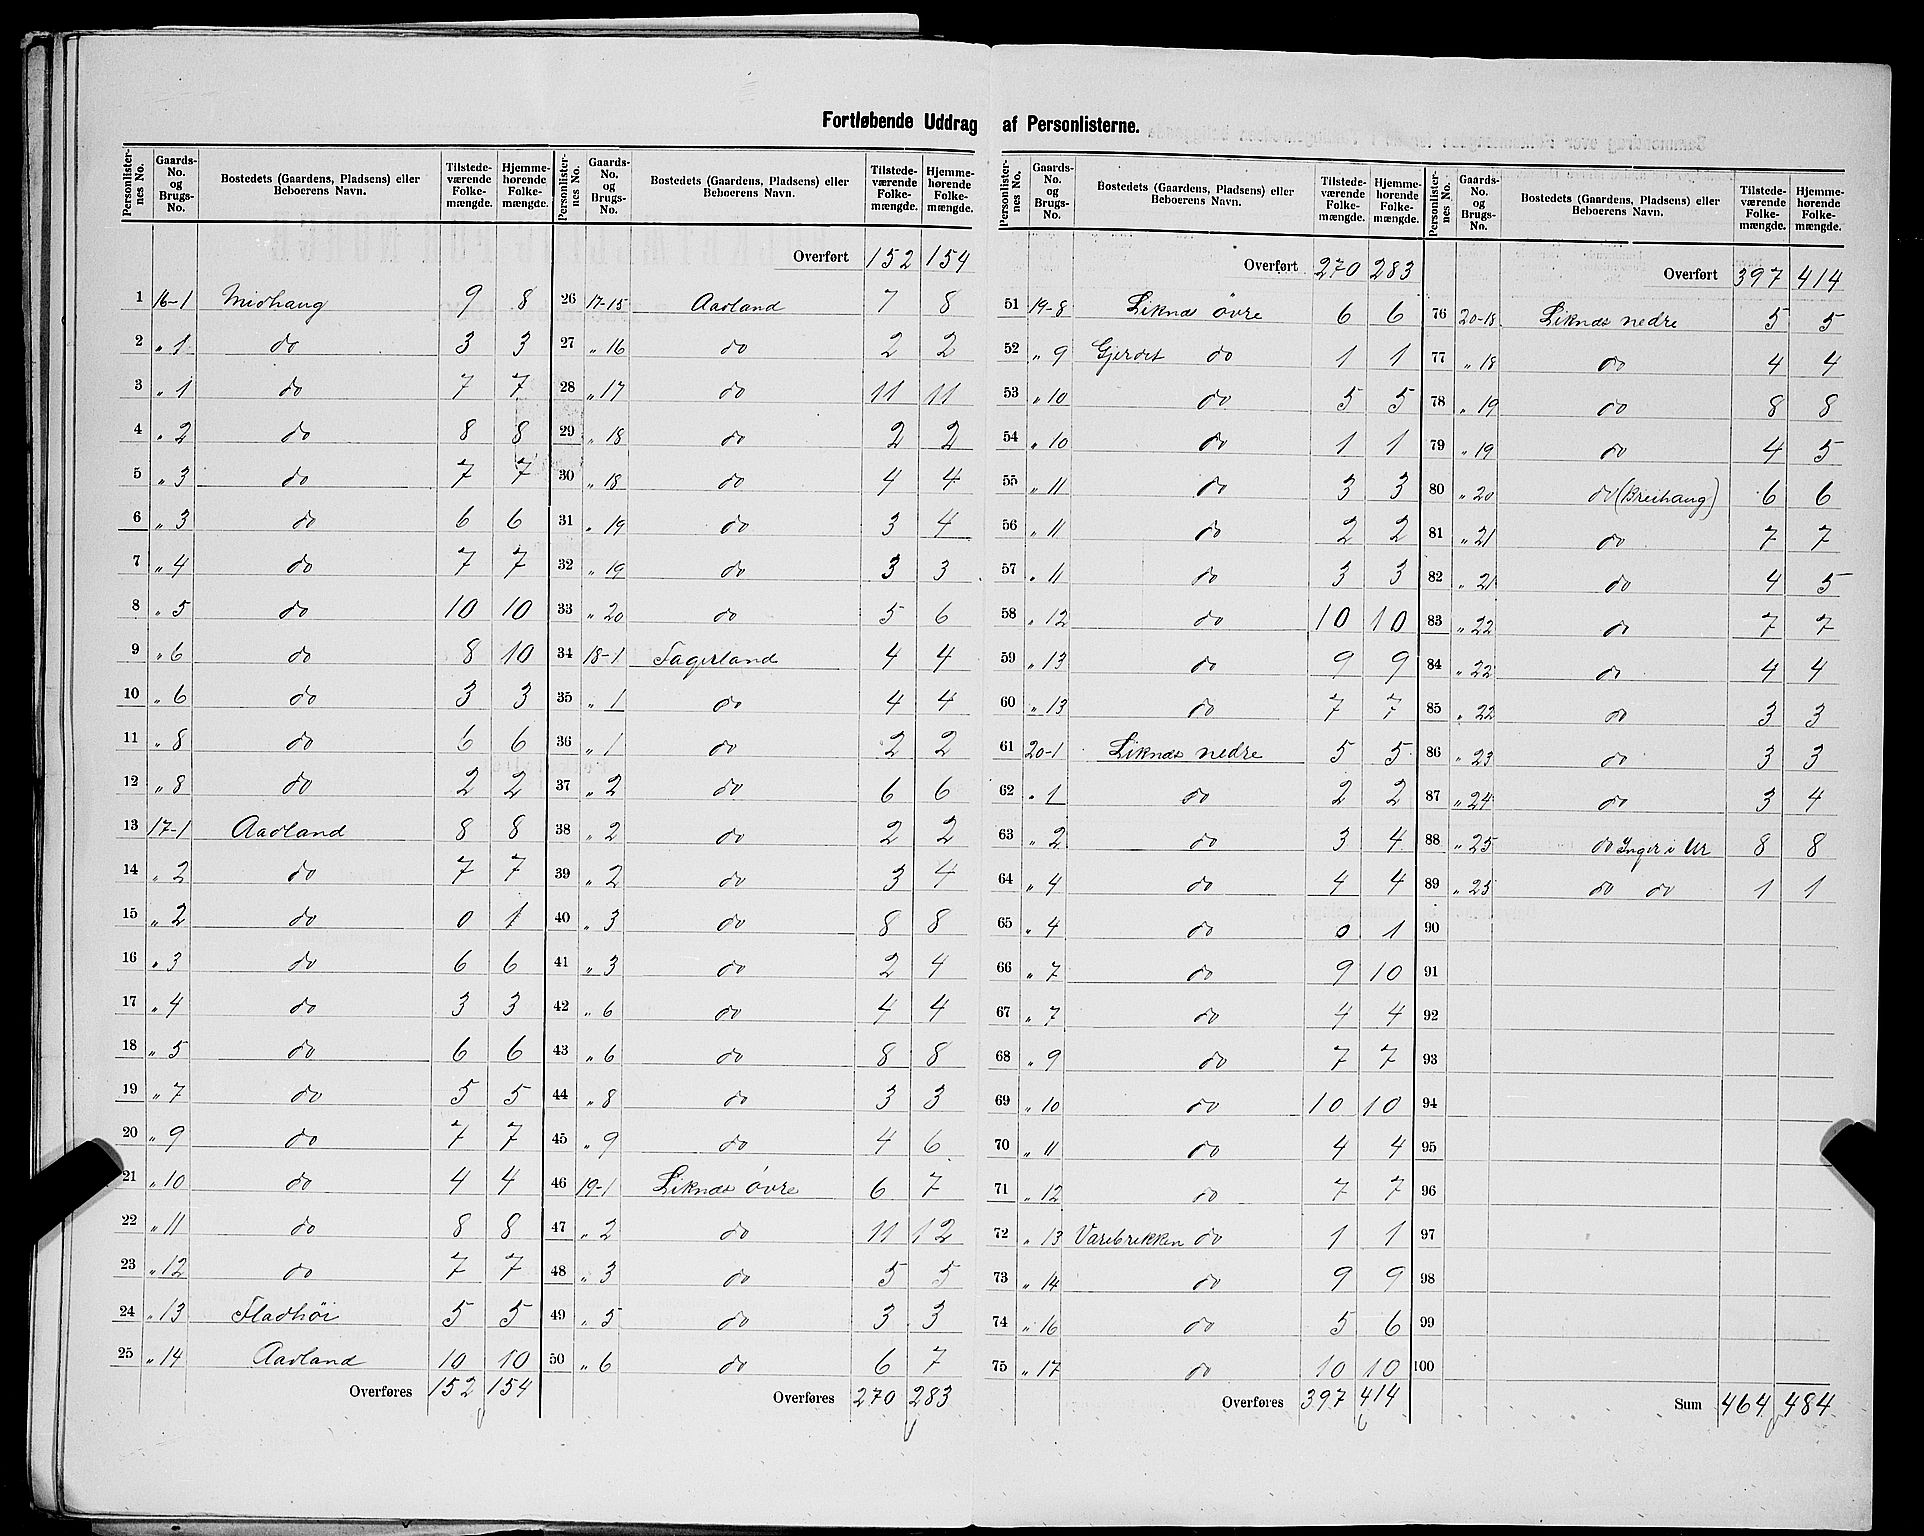 Fortløbende Uddrag af Personlisterne.
Personlisternes No. | Gaards-No. og Brugs-No. | Bostedets (Gaardens, Pladsens) eller Beboerens Navn. | Tilstedeværende Folkemængde. | Hjemmehørende Folkemængde.
1 16-1 Midhaug 9 8
2 " 1 do 3 3
3 " 1 do 7 7
4 " 2 do 8 8
5 " 3 do 7 7
6 " 3 do 6 6
7 " 4 do 7 7
8 " 5 do 10 10
9 " 6 do 8 10
10 " 6 do 3 3
11 " 8 do 6 6
12 " 8 do 2 2
13 17-1 Aadland 8 8
14 " 2 do 7 7
15 " 2 do 0 1
16 " 3 do 6 6
17 " 4 do 3 3
18 " 5 do 6 6
19 " 7 do 5 5
20 " 9 do 7 7
21 " 10 do 4 4
22 " 11 do 8 8
23 " 12 do 7 7
24 " 13 Fladhöi 5 5
25 " 14 Aadland 10 10
Overføres 152 154
Personlisternes No. | Gaards-No. og Brugs-No. | Bostedets (Gaardens, Pladsens) eller Beboerens Navn. | Tilstedeværende Folkemængde. | Hjemmehørende Folkemængde.
Overført 152 154
26 17-15 Aadland 7 8
27 " 16 do 2 2
28 " 17 do 11 11
29 " 18 do 2 2
30 " 18 do 4 4
31 " 19 do 3 4
32 " 19 do 3 3
33 " 20 do 5 6
34 18-1 Fagerland 4 4
35 " 1 do 4 4
36 " 1 do 2 2
37 " 2 do 6 6
38 " 2 do 2 2
39 " 2 do 3 4
40 " 3 do 8 8
41 " 3 do 2 4
42 " 6 do 4 4
43 " 6 do 8 8
44 " 8 do 3 3
45 " 9 do 4 6
46 19-1 Liknæs övre 6 7
47 " 2 do 11 12
48 " 3 do 5 5
49 " 5 do 3 3
50 " 6 do 6 7
Overføres 270 283
Personlisternes No. | Gaards-No. og Brugs-No. | Bostedets (Gaardens, Pladsens) eller Beboerens Navn. | Tilstedeværende Folkemængde. | Hjemmehørende Folkemængde.
Overført 270 283
51 19-8 Liknæs övre 6 6
52 " 9 Gjerdet do 1 1
53 " 10 do 5 5
54 " 10 do 1 1
55 " 11 do 3 3
56 " 11 do 2 2
57 " 11 do 3 3
58 " 12 do 10 10
59 " 13 do 9 9
60 " 13 do 7 7
61 20-1 Liknæs nedre 5 5
62 " 1 do 2 2
63 " 2 do 3 4
64 " 4 do 4 4
65 " 4 do 0 1
66 " 7 do 9 10
67 " 7 do 4 4
68 " 9 do 7 7
69 " 10 do 10 10
70 " 11 do 4 4
71 " 12 do 7 7
72 " 13 Varebrekken do 1 1
73 " 14 do 9 9
74 " 16 do 5 6
75 " 17 do 10 10
Overføres 397 414
Personlisternes No. | Gaards-No. og Brugs-No. | Bostedets (Gaardens, Pladsens) eller Beboerens Navn. | Tilstedeværende Folkemængde. | Hjemmehørende Folkemængde.
Overført 397 414
76 20-18 Liknæs nedre 5 5
77 " 18 do 4 4
78 " 19 do 8 8
79 " 19 do 4 5
80 " 20 do (Breihaug) 6 6
81 " 21 do 7 7
82 " 21 do 4 5
83 " 22 do 7 7
84 " 22 do 4 4
85 " 22 do 3 3
86 " 23 do 3 3
87 " 24 do 3 4
88 " 25 do Inger i Ur 8 8
89 " 25 do do 1 1
90
91
92
93
94
95
96
97
98
99
100
Sum 464 484